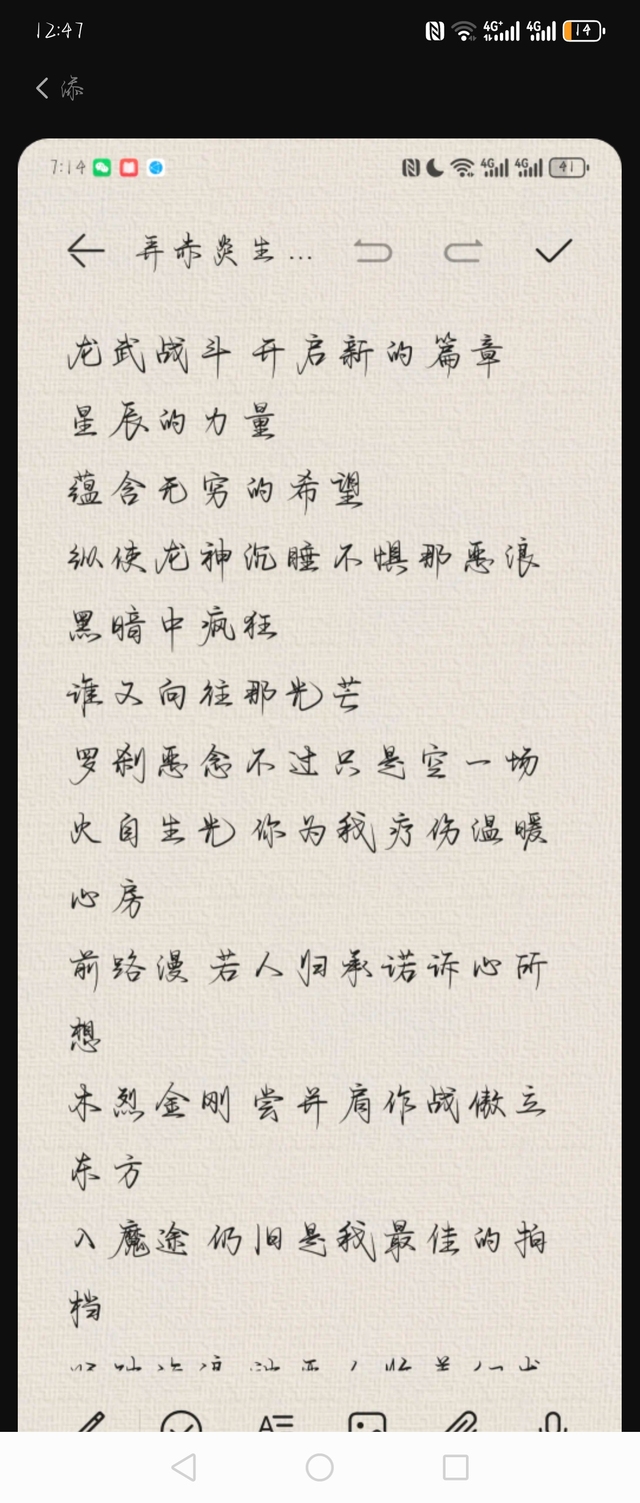 12:47
4G+ 4G 14
添
7:14
4G 4G 41
弄赤炎生...
龙武战斗 开启新的篇章
星辰的力量
蕴含无穷的希望
纵使龙神沉睡不惧那恶浪
黑暗中疯狂
谁又向往那光芒
罗刹恶念不过只是空一场
火自生光 你为我疗伤温暖
心房
前路漫 若人归承诺诉心所
想
木烈金刚 尝并肩作战傲立
东方
入魔途 仍旧是我最佳的拍
档